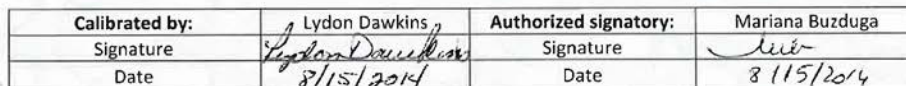 Calibrated by: Lydon Dawkins Authorized signatory: Mariana Buzduga
Signature Lydon Dawkins Signature
Date 8/15/2014 Date 8/15/2014